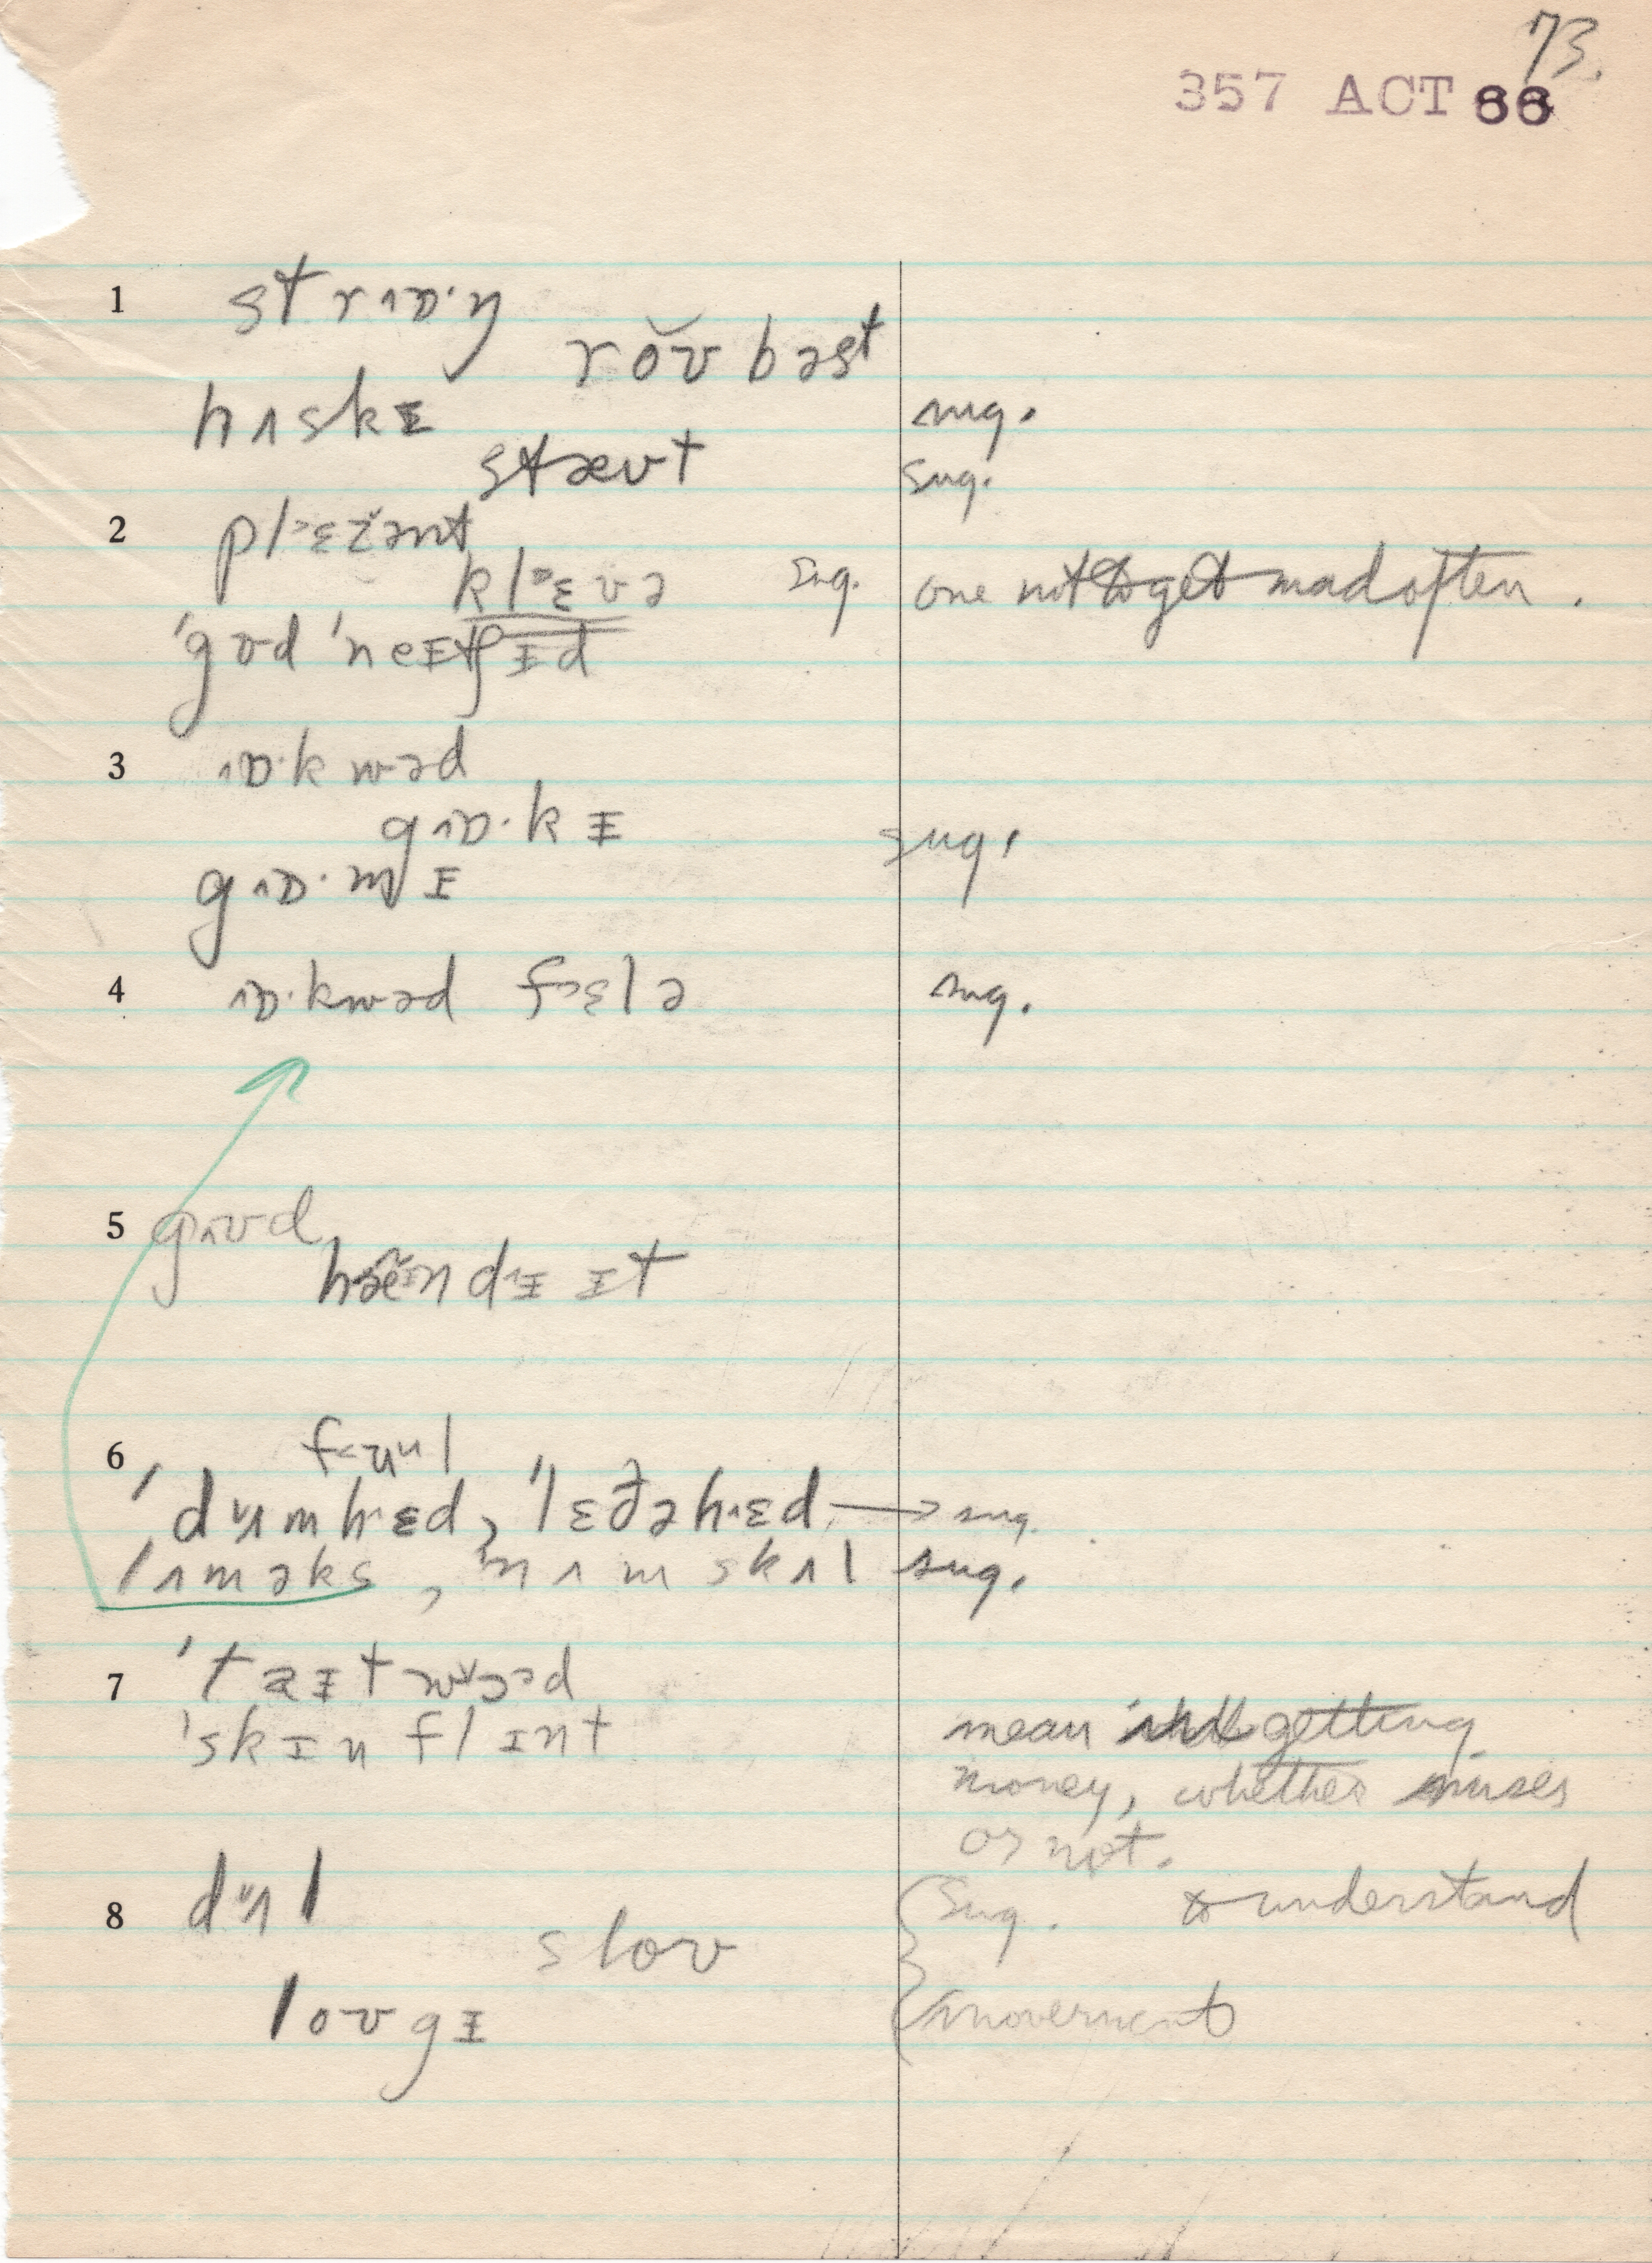 73.
357 ACT 66
1 strɒ·ŋ
roʊbəst
hʌskɪ sug.
stæʊt sug.
2 plɛžənt
klɛvə sug. one not to get mad often.
'gʊd 'neɪtʃɪd
3 ɒ·kwəd
gɒ·kɪ sug.
gɒ·mɪ
4 ɒ·kwəd fɛlə sug.
5 gʊd
hændɪ ɪt
6 fuul
'dʌmhɛd, 'lɛðəhɛd → sug.
lʌməks, nʌmskʌl sug.
7 'taɪtwɔd
'skɪnflɪnt mean getting
money, whether
or not.
8 dʌl sug. to understand
sloʊ
loʊgɪ movement